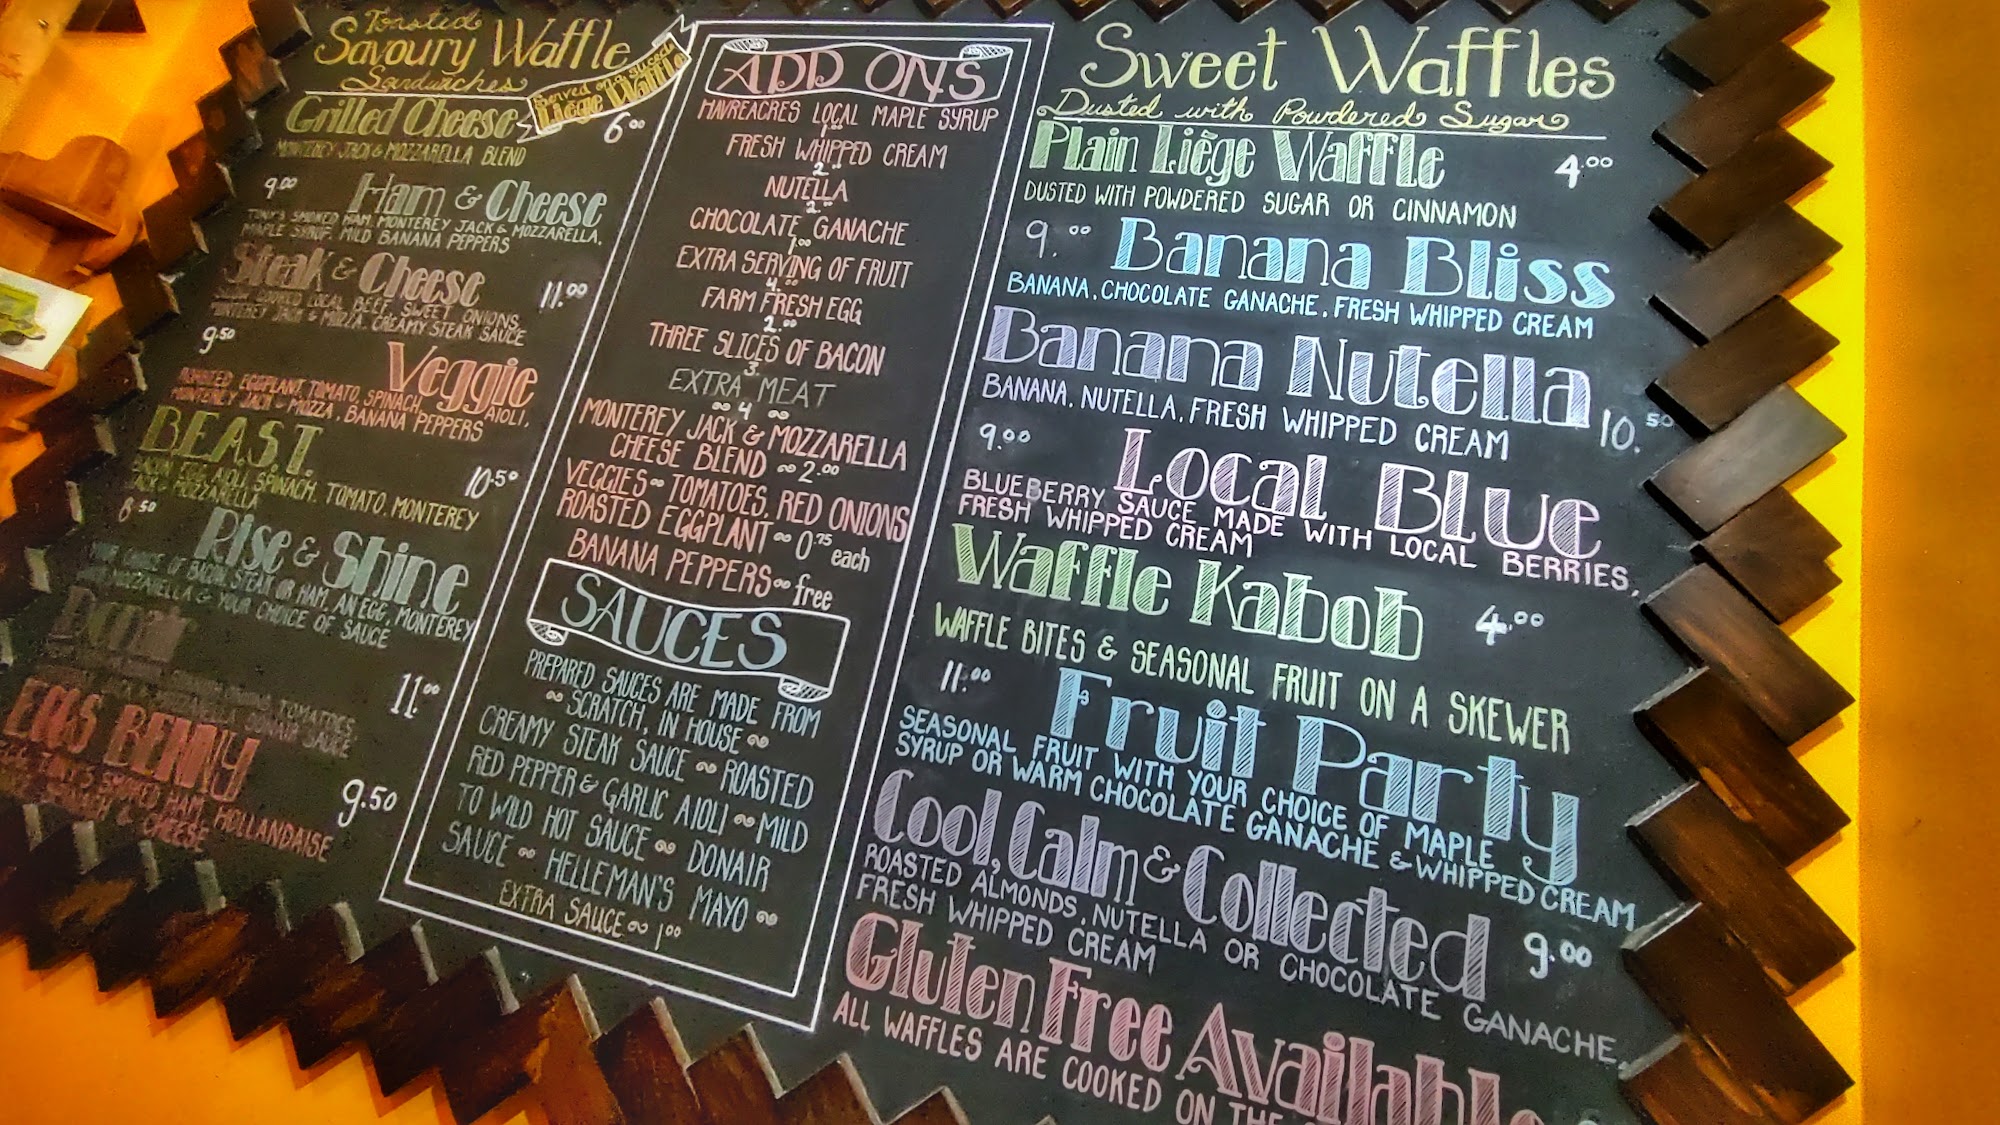 Toasted
Savoury Waffle
Sandwiches
Served on a Sweet
Liège Waffle
Grilled Cheese 6.00
MONTEREY JACK & MOZZARELLA BLEND
9.00 Ham & Cheese
TONY'S SMOKED HAM, MONTEREY JACK & MOZZARELLA,
MAPLE SYRUP, MILD BANANA PEPPERS
Steak & Cheese 11.00
COOKED LOCAL BEEF, SWEET ONIONS,
MONTEREY JACK & MOZZA, CREAMY STEAK SAUCE
9.50 Veggie
ROASTED EGGPLANT, TOMATO, SPINACH, AIOLI,
MONTEREY JACK & MOZZA, BANANA PEPPERS
B.E.A.S.T. 10.50
BACON, EGG, AIOLI, SPINACH, TOMATO, MONTEREY
JACK & MOZZARELLA
8.50 Rise & Shine
CHOICE OF BACON, STEAK OR HAM, AN EGG, MONTEREY
MOZZARELLA & YOUR CHOICE OF SAUCE
Donair 11.00
TOMATOES,
DONAIR SAUCE
EGGS BENNY 9.50
EGG, TONY'S SMOKED HAM, HOLLANDAISE
SPINACH & CHEESE
ADD ONS
HAVREACRES LOCAL MAPLE SYRUP
1.00
FRESH WHIPPED CREAM
2.00
NUTELLA
2.00
CHOCOLATE GANACHE
1.00
EXTRA SERVING OF FRUIT
4.00
FARM FRESH EGG
2.00
THREE SLICES OF BACON
3.00
EXTRA MEAT
4.00
MONTEREY JACK & MOZZARELLA
CHEESE BLEND ~ 2.00
VEGGIES ~ TOMATOES, RED ONIONS
ROASTED EGGPLANT ~ 0.75 each
BANANA PEPPERS ~ free
SAUCES
PREPARED SAUCES ARE MADE FROM
~ SCRATCH, IN HOUSE ~
CREAMY STEAK SAUCE ~ ROASTED
RED PEPPER & GARLIC AIOLI ~ MILD
TO WILD HOT SAUCE ~ DONAIR
SAUCE ~ HELLEMAN'S MAYO ~
EXTRA SAUCE ~ 1.00
Sweet Waffles
Dusted with Powdered Sugar
Plain Liège Waffle 4.00
DUSTED WITH POWDERED SUGAR OR CINNAMON
9.00 Banana Bliss
BANANA, CHOCOLATE GANACHE, FRESH WHIPPED CREAM
Banana Nutella 10.50
BANANA, NUTELLA, FRESH WHIPPED CREAM
9.00 Local Blue
BLUEBERRY SAUCE MADE WITH LOCAL BERRIES,
FRESH WHIPPED CREAM
Waffle Kabob 4.00
WAFFLE BITES & SEASONAL FRUIT ON A SKEWER
11.00 Fruit Party
SEASONAL FRUIT WITH YOUR CHOICE OF MAPLE
SYRUP OR WARM CHOCOLATE GANACHE & WHIPPED CREAM
Cool, Calm & Collected 9.00
ROASTED ALMONDS, NUTELLA OR CHOCOLATE GANACHE,
FRESH WHIPPED CREAM
Gluten Free Available
ALL WAFFLES ARE COOKED ON THE